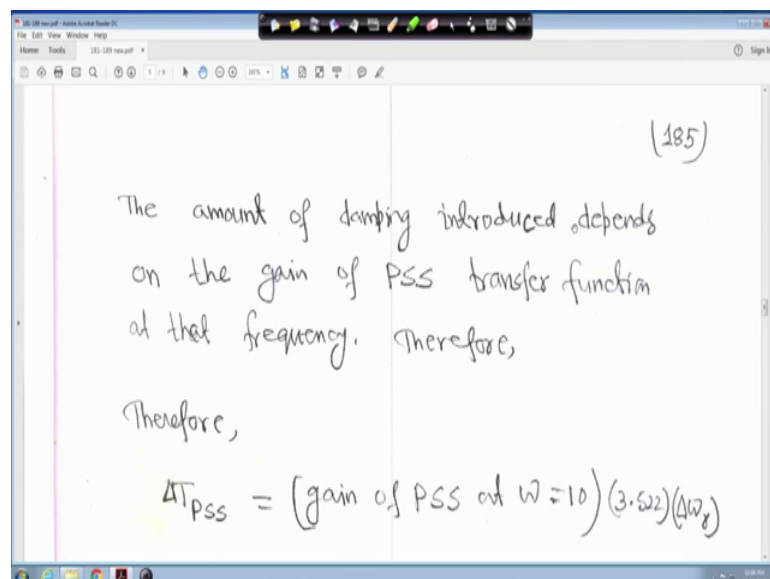 181-189 new.pdf - Adobe Acrobat Reader DC
File Edit View Window Help
Home Tools 181-189 new.pdf × Sign In
(185)
The amount of damping introduced depends
on the gain of PSS transfer function
at that frequency. Therefore,
Therefore,
ΔT_PSS = (gain of PSS at ω=10)(3.522)(Δω_r)